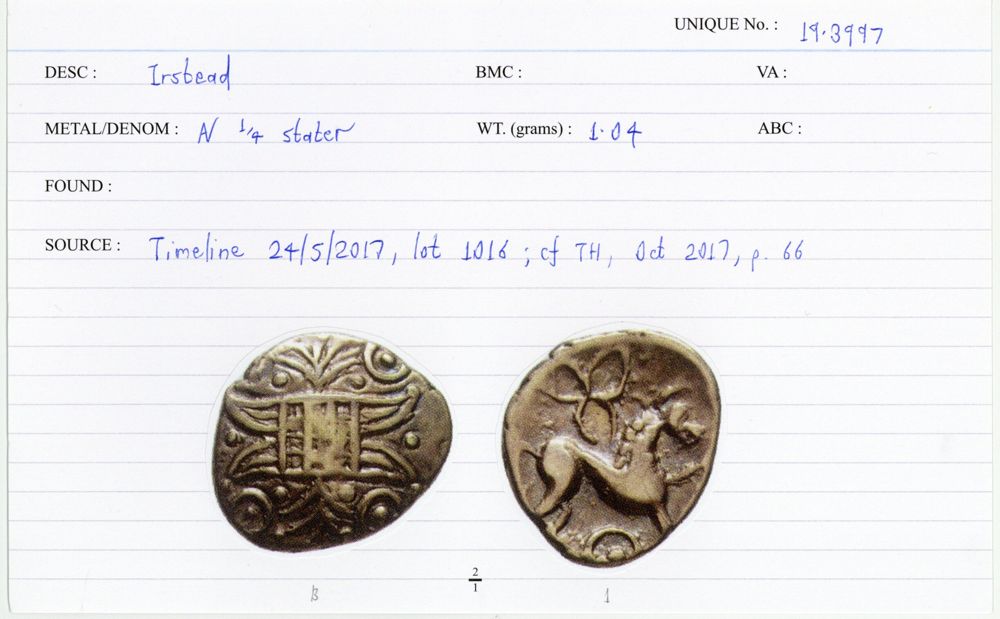 UNIQUE No. : 19.3997
DESC : Irstead BMC : VA :
METAL/DENOM : N 1/4 stater WT. (grams) : 1.04 ABC :
FOUND :
SOURCE : Timeline 24/5/2017, lot 1016 ; cf TH, Oct 2017, p. 66
2/1
B 1